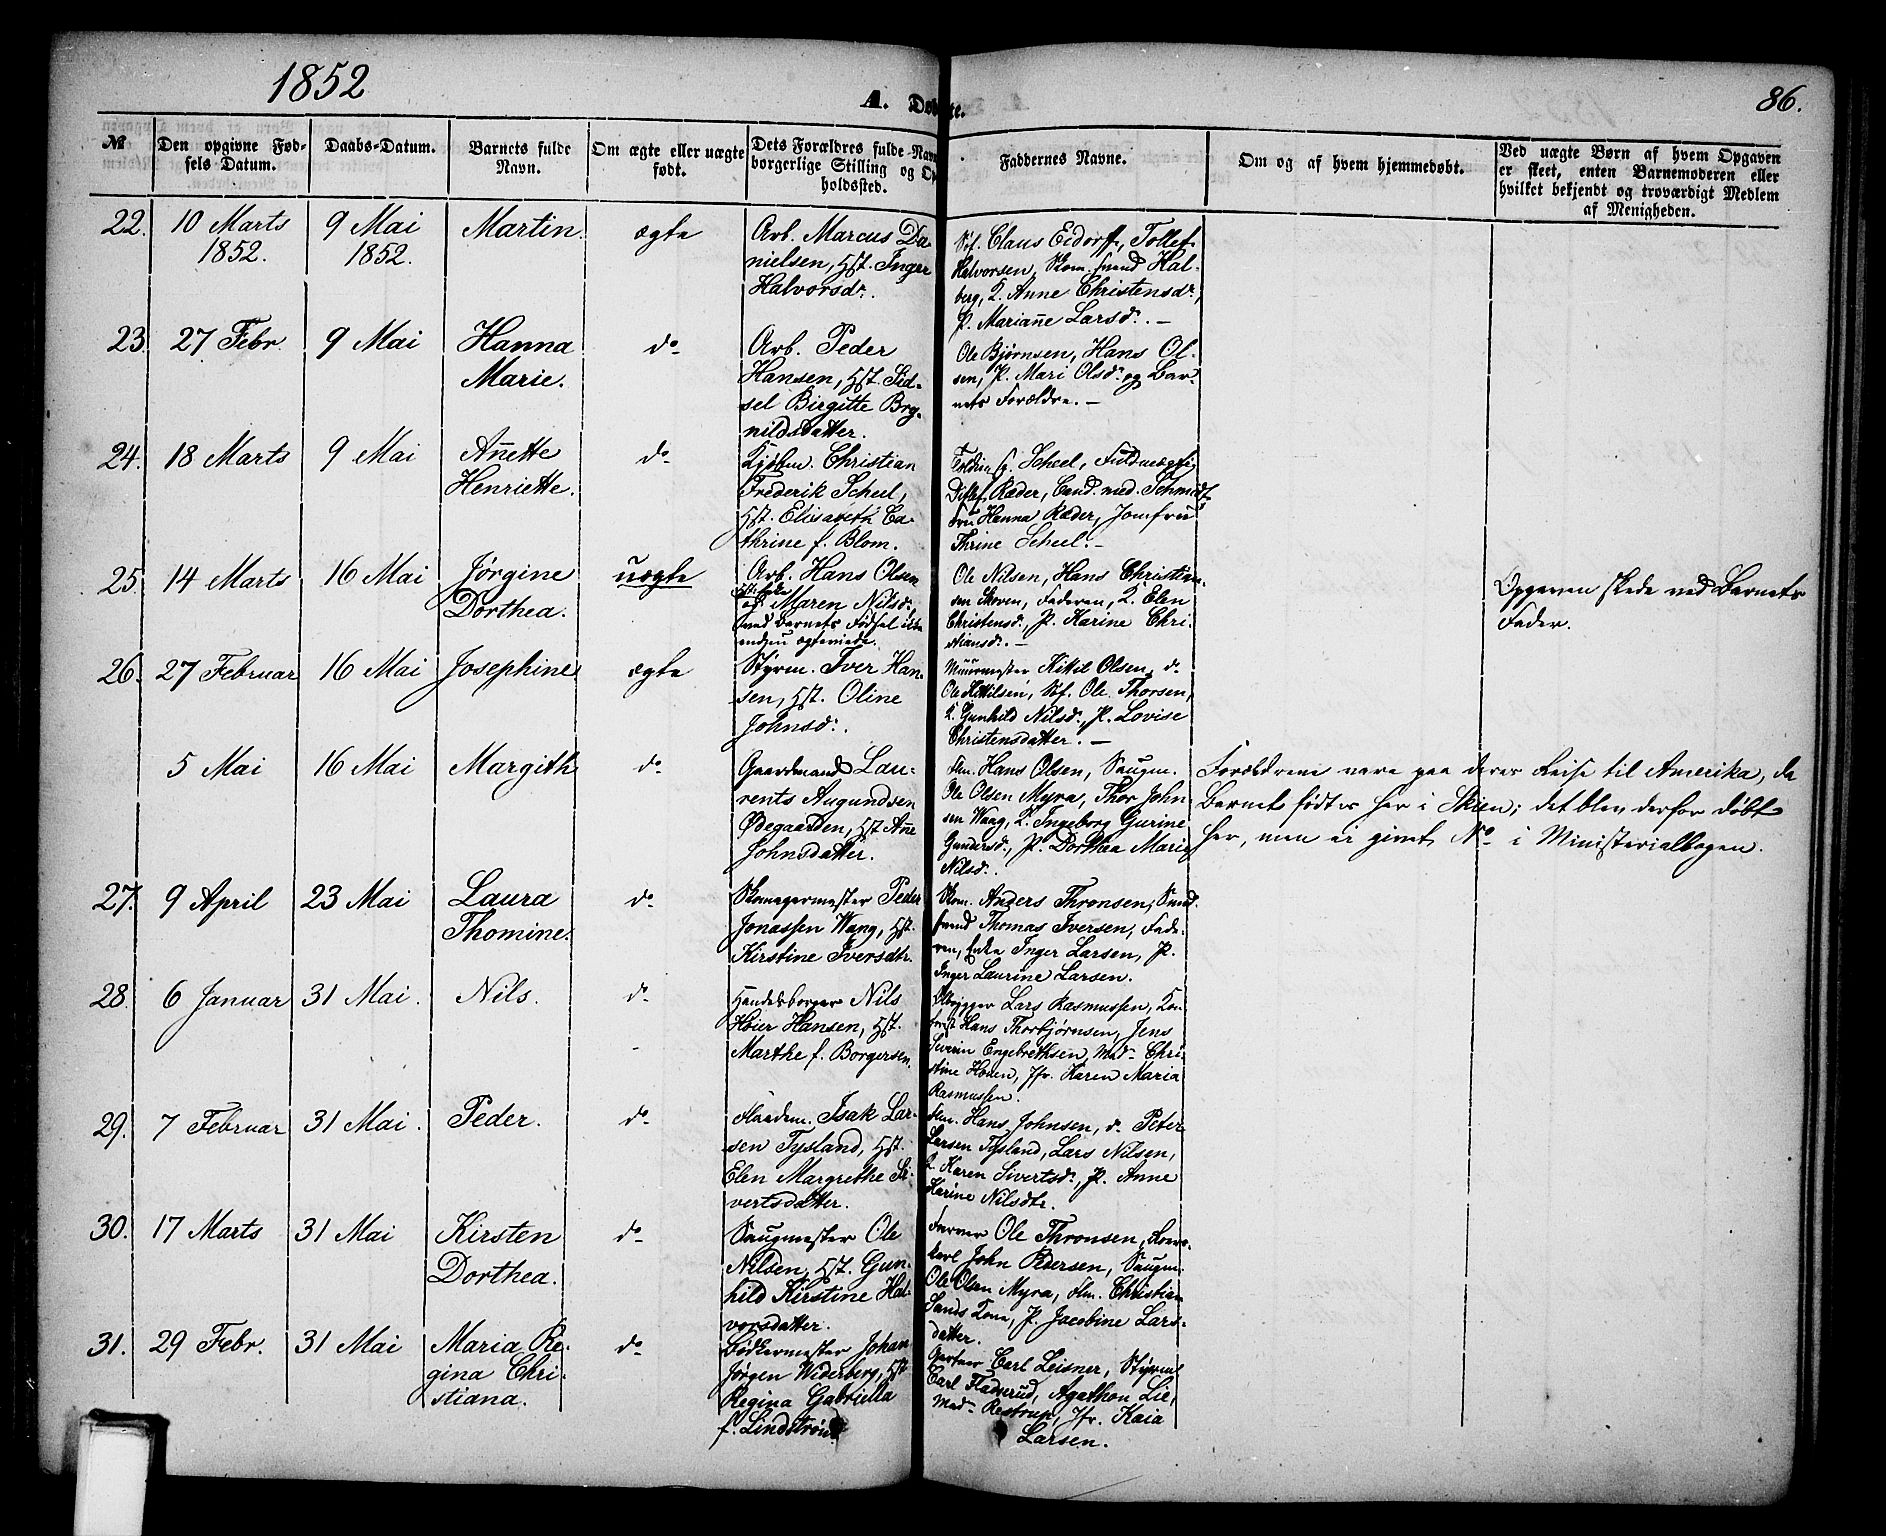 1852
A. Døbte.
86.
No
Den opgivne Fød-
sels Datum.
Daabs-Datum.
Barnets fulde
Navn.
Om ægte eller uægte
født.
Dets Forældres fulde Navn
borgerlige Stilling og Op
holdssted.
Faddernes Navne.
Om og af hvem hjemmedøbt.
Ved uægte Børn af hvem Opgaven
er skeet, enten Barnemoderen eller
hvilket bekjendt og troværdigt Medlem
af Menigheden.
22. 10 Marts
1852.
9 Mai
1852.
Martin.
ægte
Arb. Marcus Da-
nielsen, Hst. Inger
Halvorsdr.
Søf. Claus Eidorff, Tollef
Halvorsen, Skom. svend Hal-
berg, K. Anne Christensdr,
P. Mariane Larsd. —
23. 27 Febr.
9 Mai
Hanna
Marie.
do
Arb. Peder
Hansen, Hst. Sid-
sel Birgitte Bry-
nildsdatter.
Ole Bjørnsen, Hans Ol-
sen, P. Mari Olsdr. og Bar-
nets Forældre. —
24. 18 Marts
9 Mai
Anette
Henriette.
do
Kjøbm. Christian
Frederik Scheel,
Hst. Elisabeth Ca-
thrine f. Blom.
Scheel, Fuldmægtig
Ditlef Ræder, Cand. med. Schmidt,
Fru Hanna Ræder, Jomfru
Thrine Scheel. —
25. 14 Marts
16 Mai
Jørgine
Dorthea.
uægte
Arb. Hans Olsen
og Maren Nilsd.
ved Barnets Fødsel ikke
endnu ægteviede.
Ole Nilsen, Hans Christian-
sen Skoven, Faderen, K. Elen
Christensd., P. Karine Chri-
stiansd. —
Opgaven skede ved Barnets
Fader.
26. 27 Februar
16 Mai
Josephine
ægte
Styrm. Iver Han-
sen, Hst. Oline
Johnsd.
Muurmester Kittil Olsen, do
Ole Kittilsen, Søf. Ole Thorsen,
K. Gunhild Nilsd., P. Lovise
Christensdatter. —
5 Mai
16 Mai
Margith
do
Gaardmand Lau-
rents Augundsen
Ødegaarden, Hst. Ane
Johnsdatter.
Flm. Hans Olsen, Saugm.
Ole Olsen Myra, Thor John-
sen Waag, K. Ingeborg Gurine
Gundersd., P. Dorthea Marie
Nilsd.
Forældrene vare paa deres Reise til Amerika, da
Barnet fødtes her i Skien; det blev derfor døbt
her, men ei givet No i Ministerialbogen.
27. 9 April
23 Mai
Laura
Thomine.
do
Skomagermester Peder
Jonassen Wang, Hst.
Kirstine Iversdtr.
Skom. Anders Thronsen, Smed-
svend Thomas Iversen, Fade-
ren, Enke Inger Larsen, P.
Inger Laurine Larsen.
28. 6 Januar
31 Mai.
Nils.
do
Handelsborger Nils
Høier Hansen, Hst.
Marthe f. Borgersen.
Ølbrygger Lars Rasmussen, Kon-
Hans Thorbjørnsen, Jens
Severin Engebrethsen, Mad. Chri-
stine Hoven, Jfr. Karen Maria
Rasmussen.
29. 7 Februar
31 Mai.
Peder.
do
Flaadem. Isak Lar-
sen Tysland, Hst.
Elen Margrethe Si-
vertsdatter.
Flm. Hans Johnsen, do Peter
Larsen Tysland, Lars Nilsen,
K. Karen Sivertsd., P. Anne
Karine Nilsdtr.
30. 17 Marts
31 Mai
Kirsten
Dorthea.
do
Saugmester Ole
Nilsen, Hst. Gun-
hild Kirstine Hal-
vorsdatter.
Farver Ole Thronsen,
karl John Pedersen, Saugm.
Ole Olsen Myra, Flm. Christian
Sands Kone, P. Jacobine Lars-
datter.
31. 29 Febr.
31 Mai
Maria Re-
gina Chri-
stiana.
do
Bødkermester Johan
Jørgen Widerberg, Hst.
Regina Gabriella
f. Lindstrøm.
Gartner Carl Leisner, Styrm.
Carl Fladerud, Agathon Lie,
Mad. Restrup, Jfr. Kaia
Larsen.